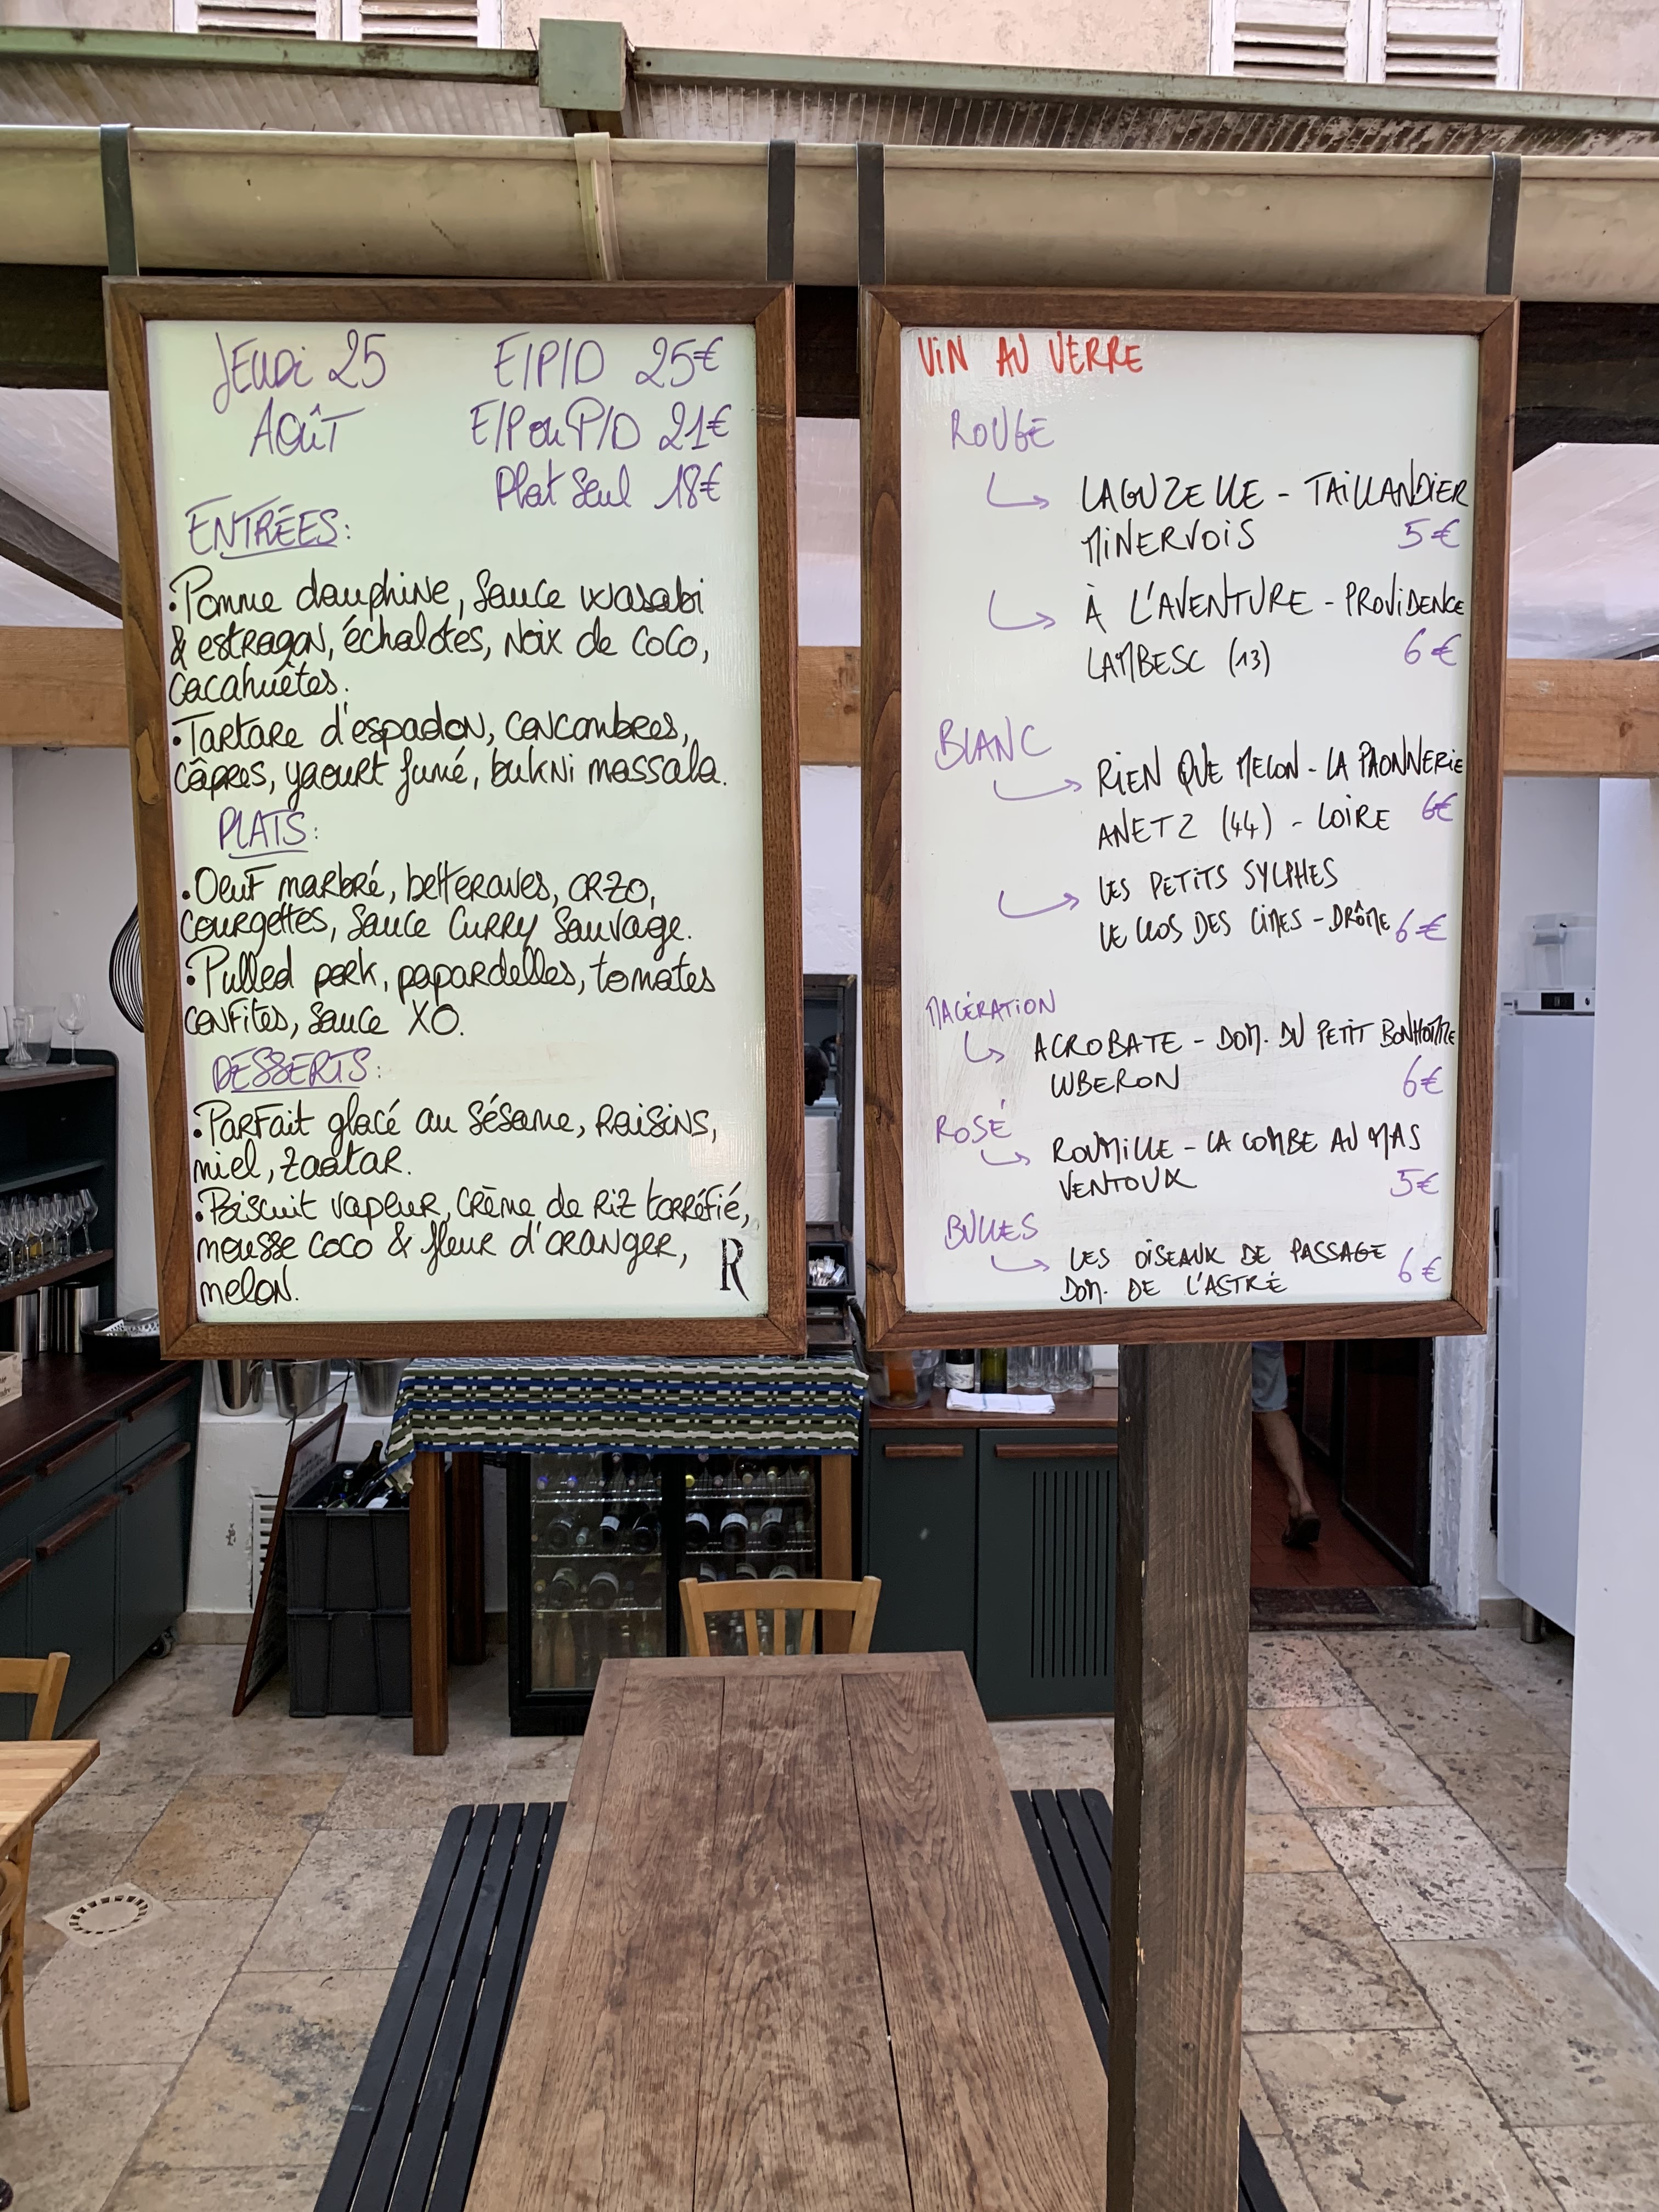 JEUDi 25
AOÛT
E/P/D 25€
E/P ou P/D 21€
Plat Seul 18€
ENTRÉES:
•Pomme dauphine, Sauce wasabi
& estragon, échalotes, Noix de coco,
Cacahuètes.
•Tartare d'espadon, concombres,
câpres, yaourt fumé, bukni massala.
PLATS:
•Oeuf marbré, betteraves, orzo,
courgettes, Sauce Curry Sauvage.
•Pulled pork, papardelles, tomates
confites, Sauce XO.
DESSERTS:
•Parfait glacé au Sésame, Raisins,
miel, zaatar.
•Biscuit vapeur, Crème de Riz torréfié,
mousse coco & fleur d'oranger,
melon.
R
ViN AU VERRE
ROUGE
LAGUZELLE - TAiLLANDiER
MiNERVOiS 5€
À L'AVENTURE - PROViDENCE
LAMBESC (13) 6€
BLANC
RiEN QUE MELON - LA PAONNERiE
ANETZ (44) - LOiRE 6€
LES PETiTS SYLPHES
LE CLOS DES CiMES - DRÔME 6€
MACÉRATiON
ACROBATE - DOM. DU PETiT BONHOMME
LUBERON 6€
ROSÉ
ROUMiLLE - LA COMBE AU MAS
VENTOUX 5€
BULLES
LES OiSEAUX DE PASSAGE
DOM. DE L'ASTRÉ 6€